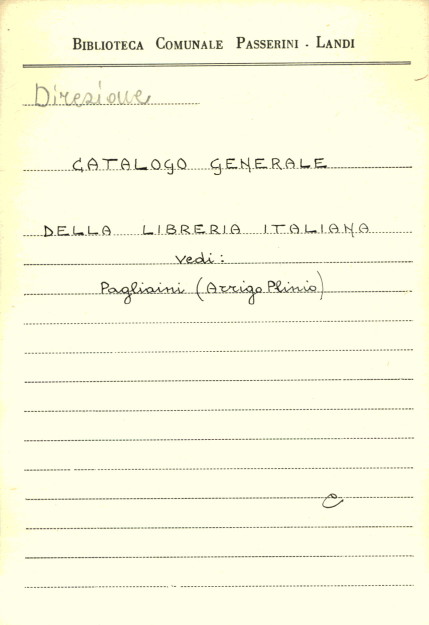 BIBLIOTECA COMUNALE PASSERINI - LANDI
Direzione
CATALOGO GENERALE
DELLA LIBRERIA ITALIANA
vedi:
Pagliaini (Arrigo Plinio)
C